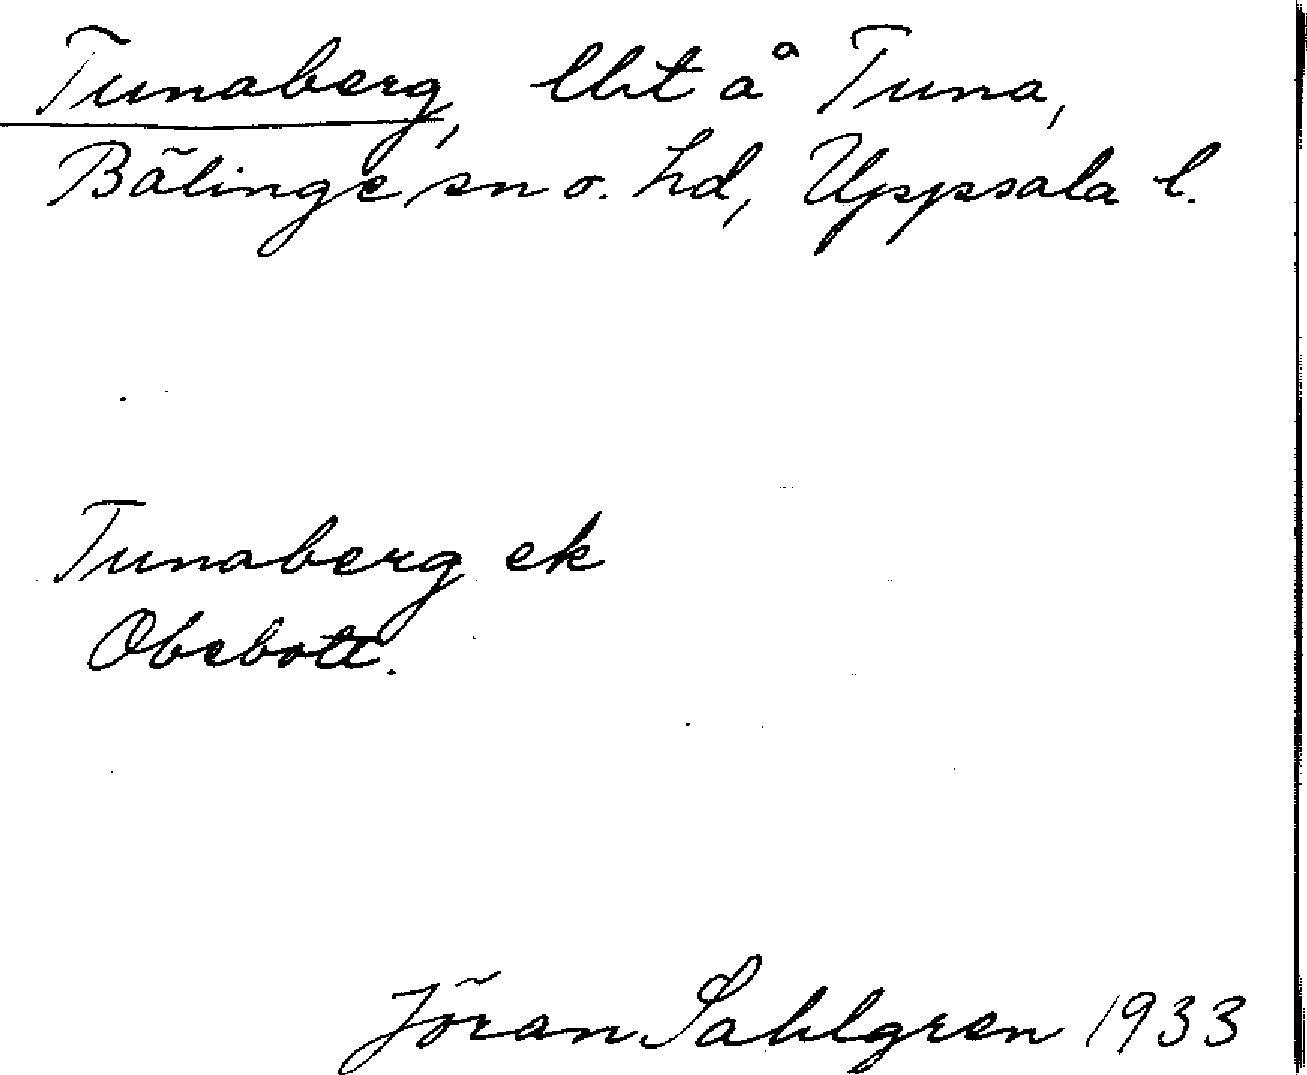 Tunaberg, lht å Tuna,
Bälinge sn o. hd, Uppsala l.
Tunaberg ek
Obebott.
Jöran Sahlgren 1933